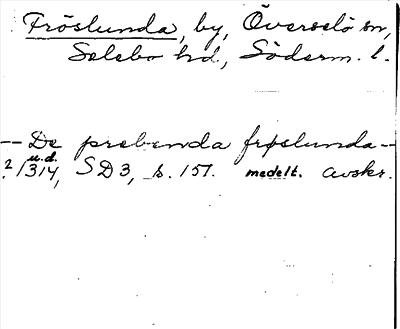 Fröslunda, by, Överselö sn,
Selebo hd, Söderm. l.
-- De prebenda frøslunda --
u.d.
?/1314, SD3, s. 157. medelt. avskr.